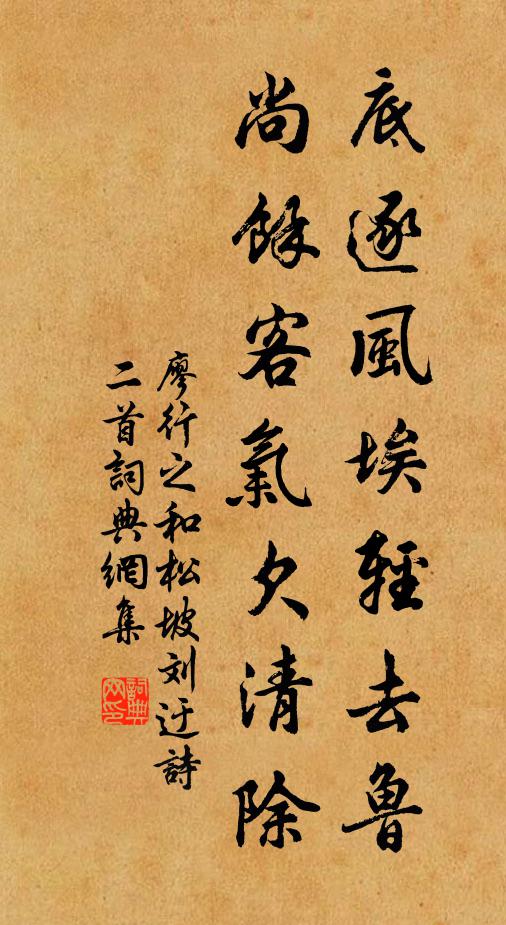 底逐風埃輕去魯
尚餘客氣欠清除
廖行之和松坡刘迂詩
二首詞典網集
詞典網印